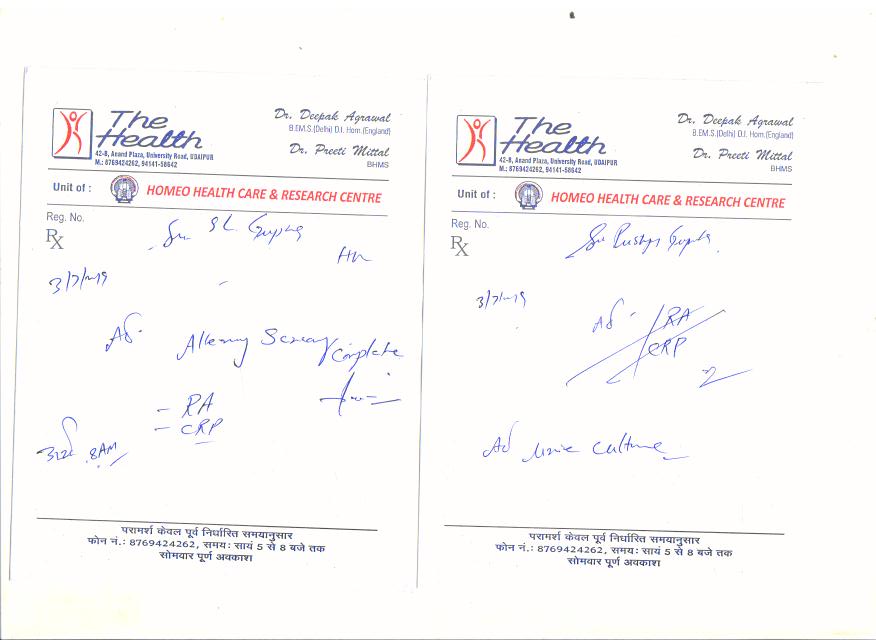 The
Health
42-B, Anand Plaza, University Road, UDAIPUR
M.: 8769424262, 94141-58642
Dr. Deepak Agrawal
B.EM.S.(Delhi) D.I. Hom.(England)
Dr. Preeti Mittal
BHMS
Unit of :
HOMEO HEALTH CARE & RESEARCH CENTRE
Reg. No.
Rx
SL Gupta
Ad.
Complete
- RA
- CRP
8AM
परामर्श केवल पूर्व निर्धारित समयानुसार
फोन नं.: 8769424262, समय: सायं 5 से 8 बजे तक
सोमवार पूर्ण अवकाश
The
Health
42-B, Anand Plaza, University Road, UDAIPUR
M.: 8769424262, 94141-58642
Dr. Deepak Agrawal
B.EM.S.(Delhi) D.I. Hom.(England)
Dr. Preeti Mittal
BHMS
Unit of :
HOMEO HEALTH CARE & RESEARCH CENTRE
Reg. No.
Rx
Gupta
Ad. RA
CRP
Ad urine culture
परामर्श केवल पूर्व निर्धारित समयानुसार
फोन नं.: 8769424262, समय: सायं 5 से 8 बजे तक
सोमवार पूर्ण अवकाश